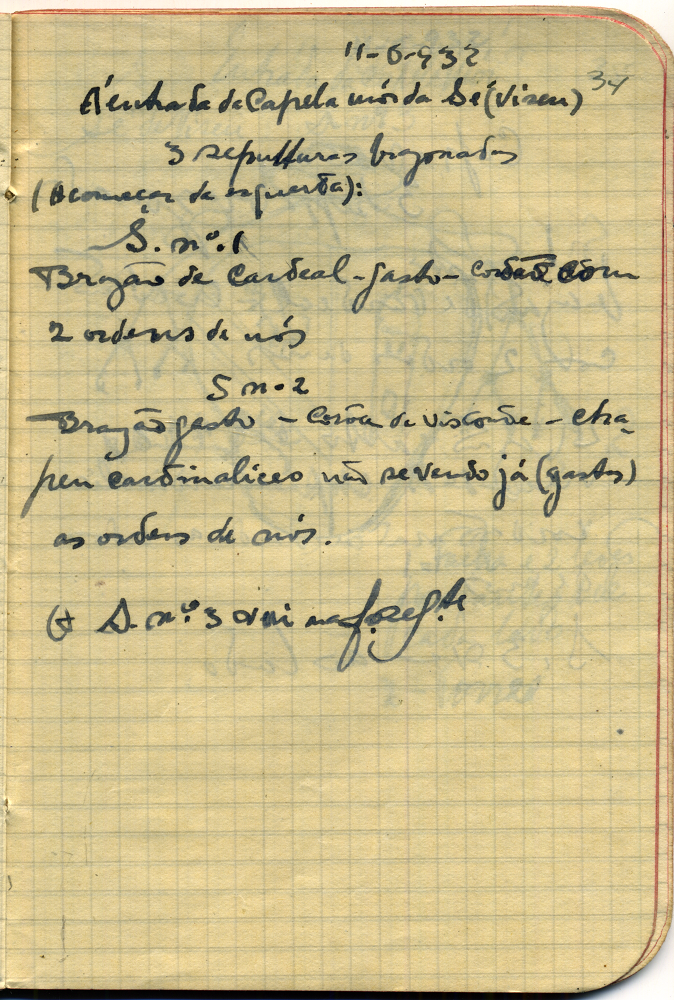 11-6-932
34
Á entrada da Capela mór da Sé (Viseu)
3 sepulturas brazonadas
(A começar da esquerda):
S. nº. 1
Brazão de Cardeal - gasto - com
2 ordens de nós
S nº 2
Brazão gasto - Corôa de Visconde - cha-
peu cardinalicio não se vendo já (gastos)
as ordens de nós.
A S. nº 3 vai na